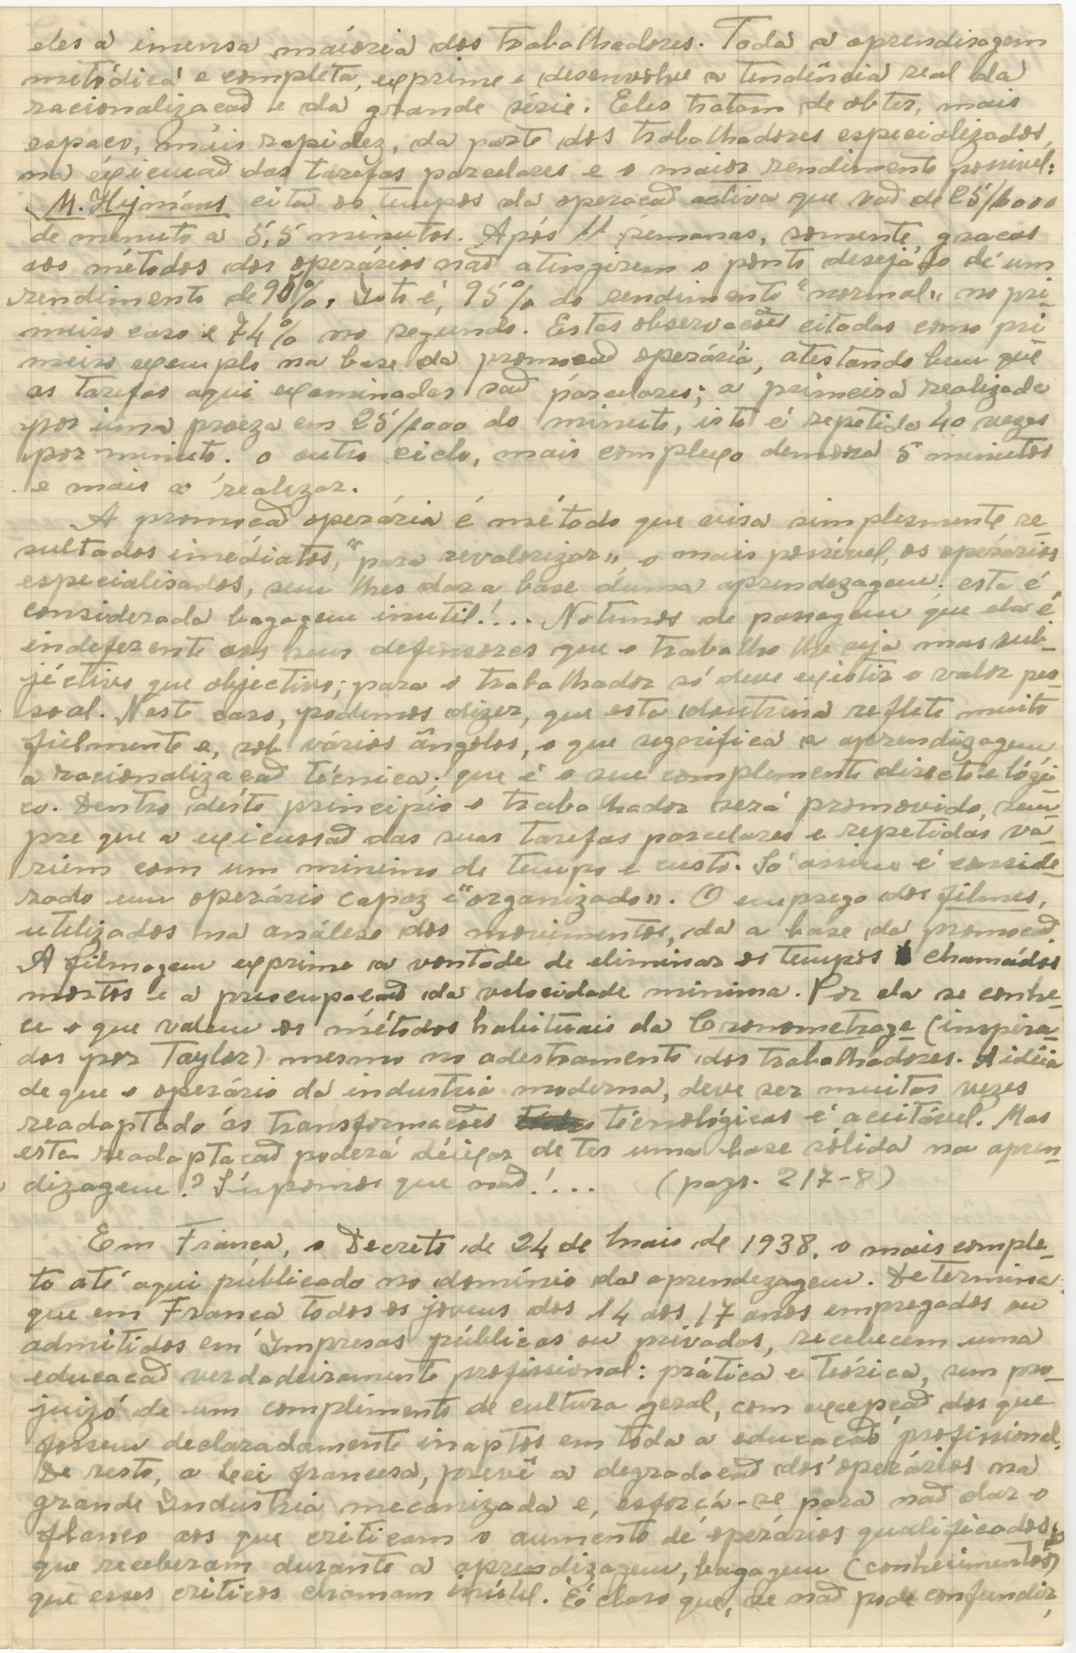 eles a imensa maioria dos trabalhadores. Toda a aprendisagem
metódica e completa, exprime e desenvolve a tendência real da
racionalizacaõ e da grande série. Eles tratam de obter, mais
espaco, mais rapidez, da parte dos trabalhadores especializados,
na exicucaõ das tarefas parcelares e o maior rendimento possivel:
M. Hymans cita os tempos da operacaõ activa que vaõ de 25/1000
de minuto a 5,5 minutos. Após 11 semanas, somente, gracas
aos métodos dos operários naõ atingirem o ponto desejado de um
rendimento de 90%, Isto é, 95% do rendimento "normal" no pri-
meiro caso e 74% no segundo. Estas observacoẽs citadas como pri
meiro exemplo na base da promocaõ operária, atestando bem que
as tarefas aqui examinadas saõ parcelares; a primeira realizada
por uma proeza em 25/1000 do minuto, isto é repetida 40 vezes
por minuto. o outro ciclo, mais complexo demora 5 minutos
e mais a realizar.
A promocaõ operária é método que visa simplesmente re-
sultados imediatos, "para revalorizar", o mais possivel, os operários
especialisados, sem lhes dar a base duma aprendezagem. esta é
considerada bagagem inutil!... Notemos de passagem que ela é
indeferente aos seus defensores que o trabalho lhe seja mas sub-
jéctivo que objectivo; para o trabalhador só deve existir o valor pes-
soal. Neste caso, podemos dizer, que esta doutrina reflete muito
fielmente e, sob vários ângolos, o que segnifica a aprendizagem
a racionalizacaõ técnica; que é o seu complemento directo e lógi
co. Dentro deste principio o trabalhador será promovido, sem-
pre que a exicussaõ das suas tarefas parcelares e repetidas va-
riem com um minimo de tempo e custo. Só assim é conside-
rado um operário capaz e "organizado". O emprego dos filmes,
utilizados na análise dos movimentos, da a base da promocaõ
A filmagem exprime a vontade de eliminar os tempos chamados
mortos e a preocupacaõ da velocidade minima. Por ela se conhe-
ce o que valem os métodos habituais da Cronometrage (inspira-
dos por Taylor) mesmo no adestramento dos trabalhadores. A idéia
de que o operário da industria moderna, deve ser muitas vezes
readaptado ás transformacoẽs técnológicas é aceitável. Mas
esta readaptacaõ poderá deixar de ter uma base sólida na apren-
dizagem? Supomos que naõ!... (pags. 217-8)
Em Franca, o Decreto de 24 de Maio de 1938, o mais comple-
to até aqui públicado no domínio da aprendezagem. Determina
que em Franca todos os jovens dos 14 aos 17 anos empregados ou
admitidos em Impresas públicas ou privadas, recebecem uma
educacaõ verdadeiramente profissional: prática e teórica, sem pre-
juizo de um complimento de cultura geral, com excepcaõ dos que
fossem declaradamente inaptos em toda a educacaõ profissional.
De resto, a Lei francesa, prevê a degradacaõ dos operários na
grande Industria mecanizada e, esforça-se para naõ dar o
flanco aos que criticam o aumento de operários qualificados;
que receberam durante a aprendizagem, bagagem (conhecimentos)
que esses criticos chamam inutil. É claro que, se naõ pode confundir,